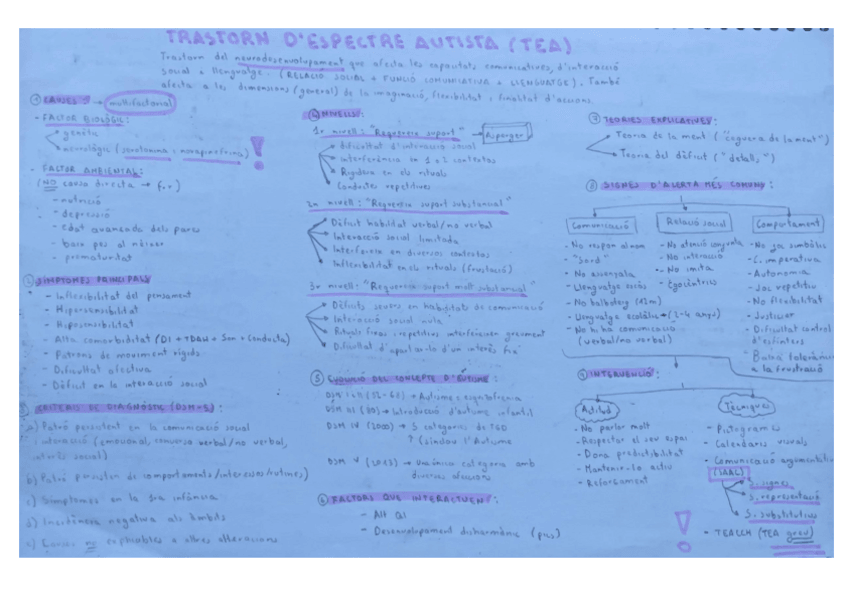 TRASTORN D'ESPECTRE AUTISTA (TEA)
Trastorn del neurodesenvolupament que afecta les capacitats comunicatives, d'interacció
social i llenguatge. (RELACIÓ SOCIAL + FUNCIÓ COMUNICATIVA + LLENGUATGE). També
afecta a les dimensions (general) de la imaginació, flexibilitat i finalitat d'accions.
① CAUSES → multifactorial
- FACTOR BIOLÒGIC:
genètic
neurològic (serotonina i norepinefrina) !
- FACTOR AMBIENTAL:
(NO causa directa →
- nutrició
- depressió
- edat avançada dels pares
- baix pes al néixer
- prematuritat
② SÍMPTOMES PRINCIPALS
- Inflexibilitat del pensament
- Hipersensibilitat
- Hiposensibilitat
- Alta comorbiditat (DI + TDAH + Son + Conducta)
- Patrons de moviment rígids
- Dificultat afectiva
- Dèficit en la interacció social
③ CRITERIS DE DIAGNÒSTIC (DSM-5)
a) Patró persistent en la comunicació social
i interacció (emocional, conversa verbal/no verbal,
interès social)
b) Patró persisten de comportaments/interessos/rutines)
c) Símptomes en la 1ra infància
d) Incidència negativa als àmbits
e) Causes no explicables a altres alteracions
④ NIVELLS:
1r nivell: "Requereix suport" → Asperger
dificultat d'interacció social
interferència en 1 o 2 contextos
Rigidesa en els rituals
Conductes repetitives
2n nivell: "Requereix suport substancial"
Dèficit habilitat verbal/no verbal
Interacció social limitada
Interferència en diversos contextos
Inflexibilitat en els rituals (frustració)
3r nivell: "Requereix suport molt substancial"
Dèficits severs en habilitats de comunicació
Interacció social nula
Rituals fixes i repetitius interfereixen greument
Dificultat d'apartar-lo d'un interès fix
⑤ EVOLUCIÓ DEL CONCEPTE D'AUTISME
DSM I i II (52-68) → Autisme = esquizofrenia
DSM III (80) → Introducció d'autisme infantil
DSM IV (2000) → 5 categories de TGD
? (sindou l'Autisme
DSM V (2013) → Una única categoria amb
diverses afeccions
⑥ FACTORS QUE INTERACTUEN:
- Alt QI
- Desenvolupament disharmònic (pics)
⑦ TEORIES EXPLICATIVES:
Teoria de la ment ("ceguera de la ment")
Teoria del dèficit ("detalls")
⑧ SIGNES D'ALERTA MÉS COMUNS:
Comunicació
- No respon al nom
- "Sord"
- No assenyala
- Llenguatge escàs
- No balboteig (12m)
- Llenguatge ecolàlic (2-4 anys)
- No hi ha comunicació
(verbal/no verbal)
Relació social
- No atenció conjunta
- No interacció
- No imita
- Egocèntrics
Comportament
- No joc simbòlic
- C. imperativa
- Autonomia
- Joc repetitiu
- No flexibilitat
- Dificultat control
d'esfínters
- Baixa tolerància
a la frustració
⑨ INTERVENCIÓ:
Actitud
- No parlar molt
- Respectar el seu espai
- Dona predictibilitat
- Mantenir-lo actiu
- Reforçament
Tècniques
- Pictogrames
- Calendaris visuals
- Comunicació augmentativa
(SAAC)
S. signes
S. representació
S. substitutius
! - TEACCH (TEA greu)